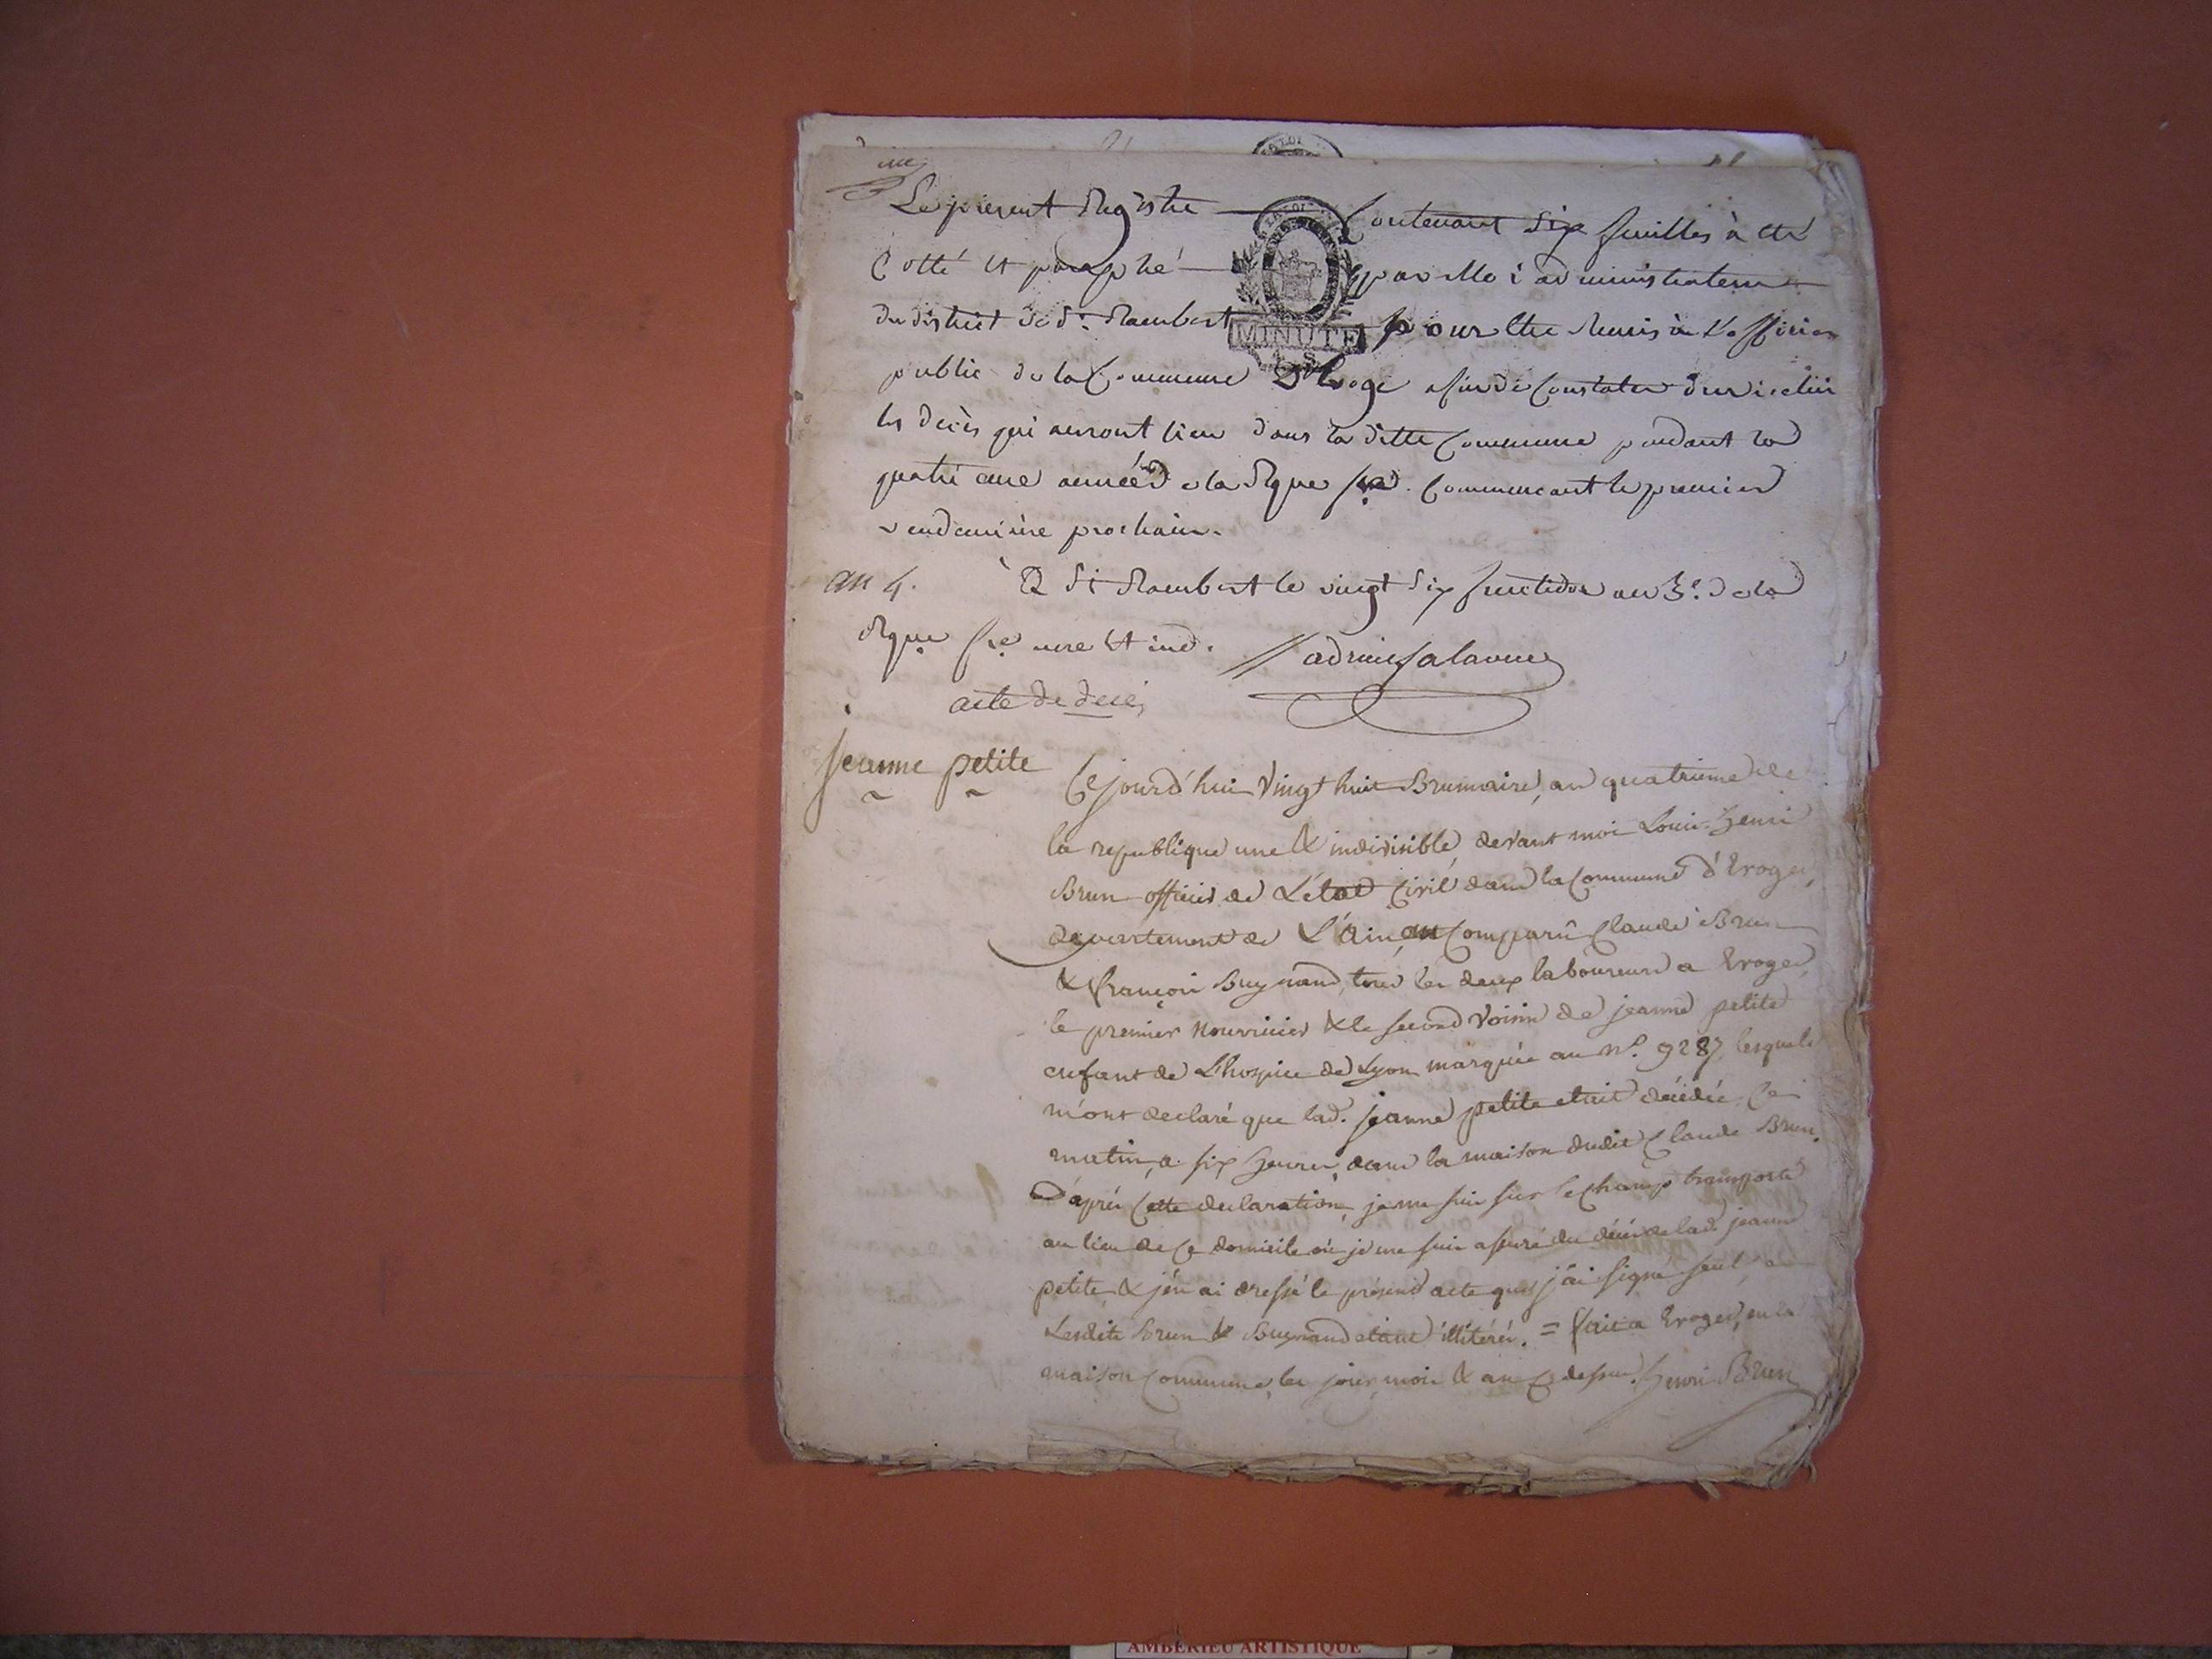 Le present Registre Contenant six feuilles à eté
Cotté et paraphé par Moi administrateur
du district de St. Rambert pour etre Remis à L'officier
MINUTE
public de la Commune D'Evoge afin de Constater dur icelui
les decès qui auront lieu dans la ditte Commune pendant la
quatrieme année de la Rque fse. Commencant le premier
vendemiaire prochain.
an 4. A St Rambert le vingt six fructidor an 3e. de la
Rque fse une et ind.
acte de decès
Jeanne petite
Cejourd'hui Vingt huit Brumaire, an quatrieme de
la republique une & indivisible, devant moi Louis-henri
Brun officier de L'état Civil dans la Commune d'Evoges,
departement de L'Ain, ont Comparû Claude Brun
& françois Buynand, tous les deux laboureurs a Evoges,
le premier Nourricier & le second Voisin de jeanne petite
enfant de L'hospice de Lyon marquée au No. 9287, lesquels
m'ont declaré que lad. jeanne petite etait décédée Ce
matin, a six heures, dans la maison dudit Claude Brun.
D'après Cette declaration, je me suis sur le champ transporté
au lieu de Ce domicile où je me suis assuré du décès de lad. jeanne
petite, & j'en ai dressé le présent acte que j'ai signé seul,
Lesdits Brun & Buynand étant illitérés. = fait a Evoges, en la
maison Commune, les jour, mois & an Ci dessus. henri Brun
AMBERIEU ARTISTIQUE